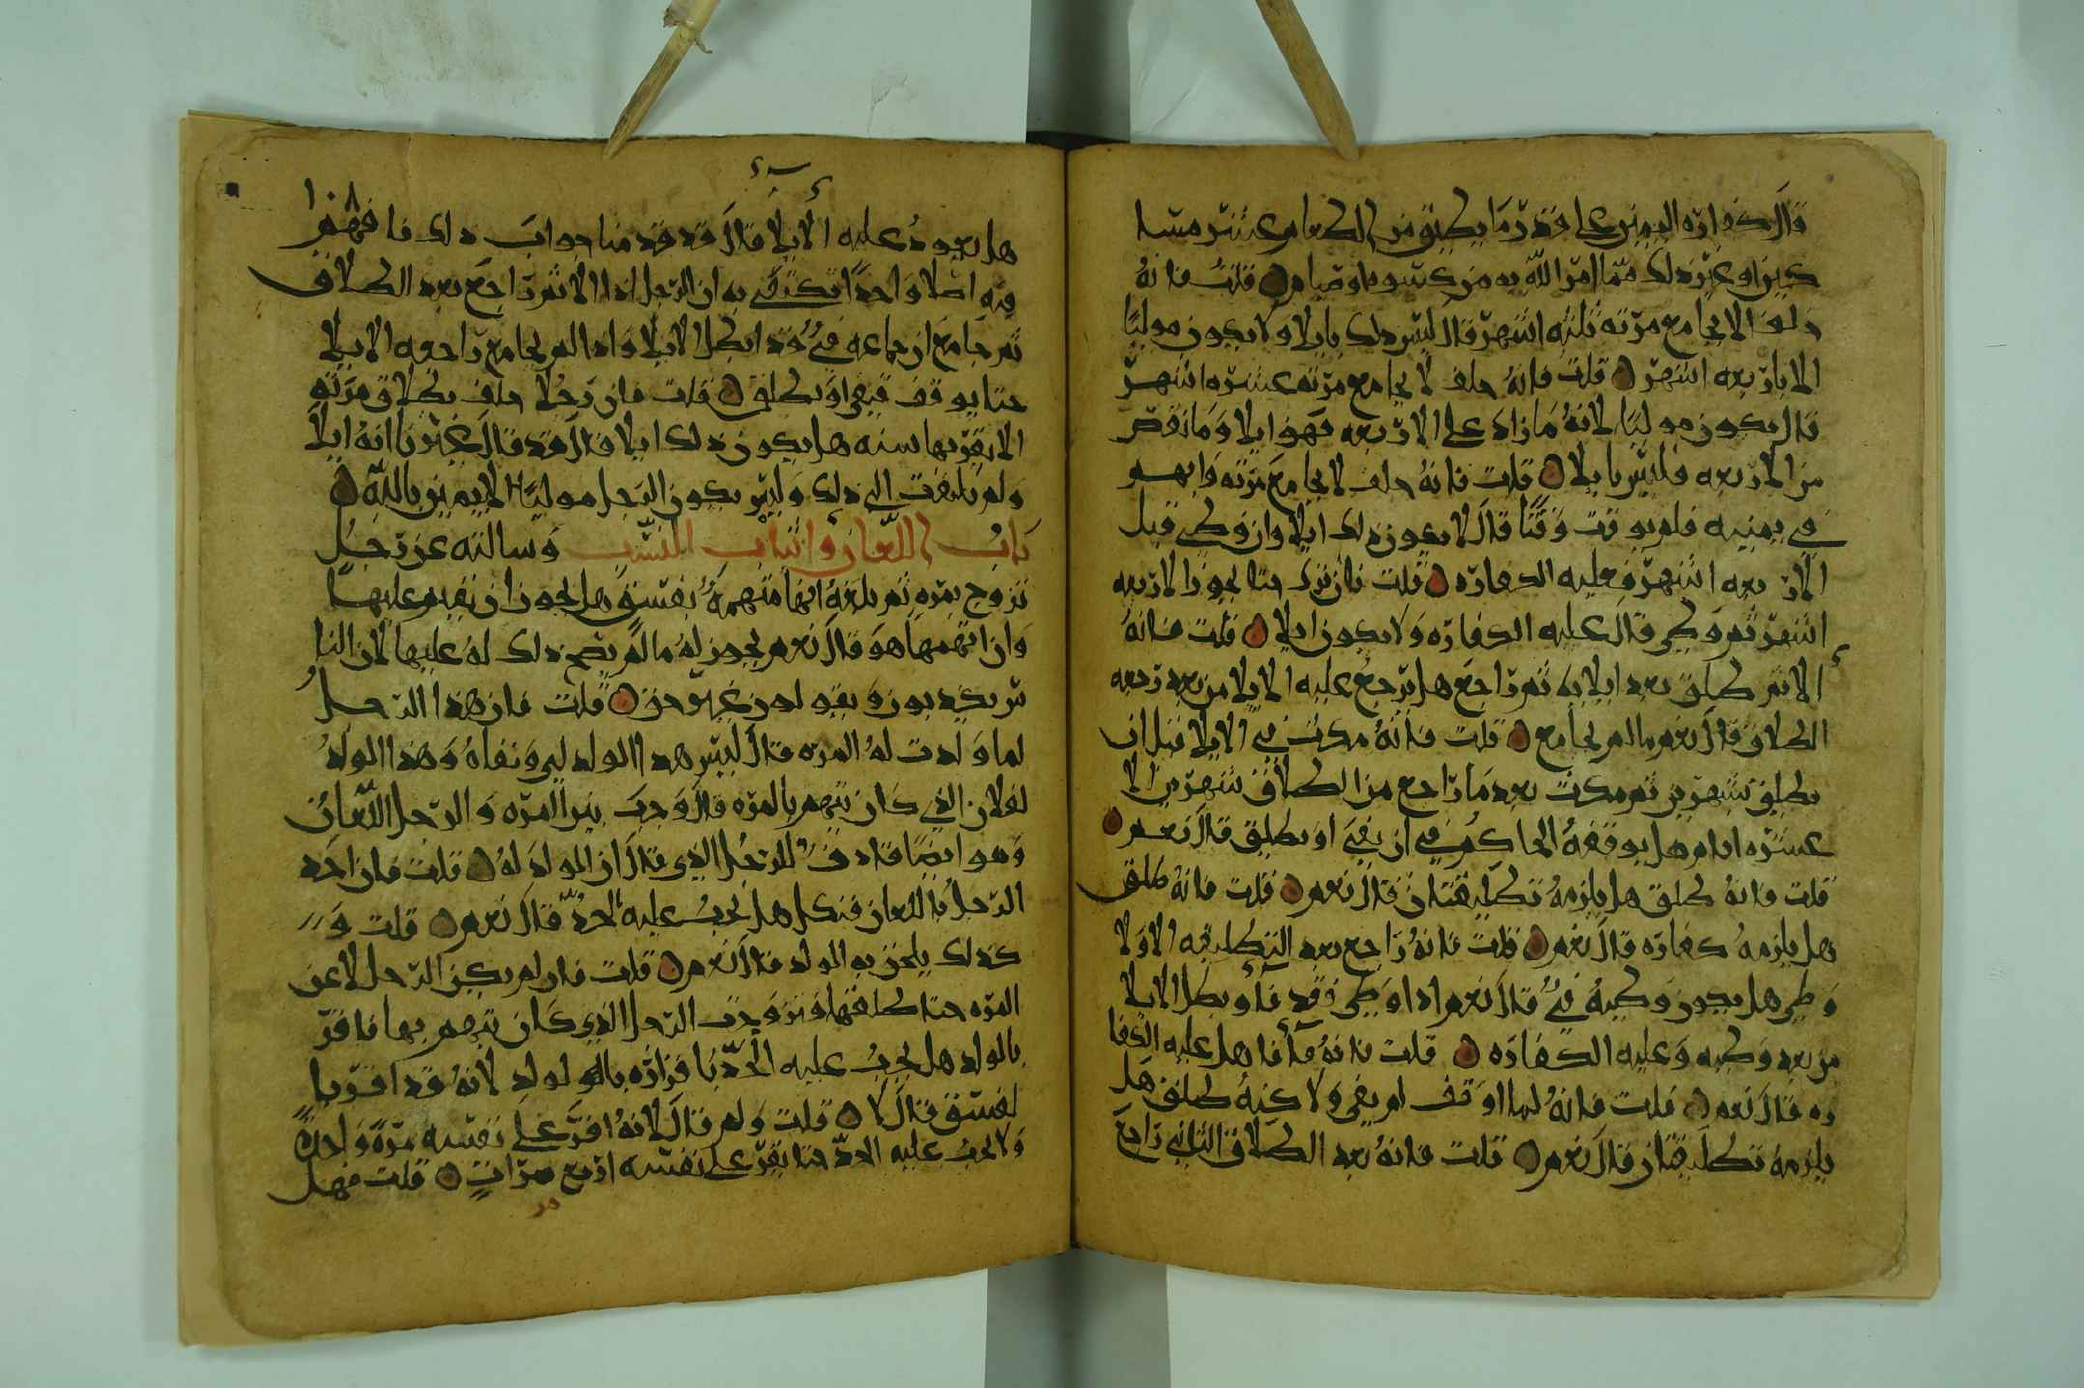 قال كفارة اليمين على قدر ما يطيق من اطعام عشر مسا
كين او غير ذلك مما امر الله به من كسوه او صيام قلت فانه
حلف الا يجامع مرته ثلثه اشهر قال ليس ذلك بايلا ولا يكون موليًا
الا باربعه اشهر قلت فانه حلف لا يجامع مرته عشره اشهر
قال يكون موليًا لانه ما زاد على الاربعه فهو ايلا وما نقص
من الاربعه فليس بايلا قلت فانه حلف لا يجامع مرته وابهم
في يمينه فلم يوقت وقتًا قال لا يكون ذلك ايلا وان وطي قبل
الاربعه اشهر فعليه الكفاره قلت فان ترك حتا تجوز الاربعه
اشهر ثم وطي قال عليه الكفاره ولا يكون ايلا قلت فانه
الا ثم طلق بعد ايلايه ثم راجع هل يرجع عليه الايلا من بعد رجعه
الطلاق قال نعم ما لم يجامع قلت فانه مكث في الايلا قبل ان
يطلق شهرين ثم مكث بعد ما راجع من الطلاق شهرين الا
عشره ايام هل يوقفه الحاكم في ان يفي او يطلق قال نعم
قلت فانه طلق هل يلزمه تطليقتان قال نعم قلت فانه طلق
هل يلزمه كفاره قال نعم قلت فانه راجع بعد التطليقه الاولا
وطي هل يكون وطيه في قال نعم اذا وطي فقد فا وبطل الايلا
من بعد وطيه وعليه الكفاره قلت فانه فا فا هل عليه الكفا
ره قال نعم قلت فانه لما اوقف لم يفي ولاكنه طلق هل
يلزمه تطليقتان قال نعم قلت فانه بعد الطلاق الثاني راجع
١٠٨
هل يعود عليه الايلا قال قد قدمنا جواب ذلك فافهم
فيه اصلا واحدًا تكتفي به ان الرجل اذا الا ثم راجع بعد الطلاق
ثم جامع ان جماعه في وقد ابطل الايلا واذا لم يجامع راجعه الايلا
حتا يوقف فيفي او يطلق قلت فان رجلا حلف بطلاق مرته
الا يقربها سنه هل يكون ذلك ايلا قال قد قال غيرنا انه ايلا
ولم يلتفت الى ذلك وليس يكون الرجل موليًا الا بيمين بالله
باب اللعان واثبات النسب وسالته عن رجل
تزوج بمره ثم بلغه انها متهمة بفسق هل يجوز ان يقيم عليها
وان اتهمها هو قال نعم يجوز له ما لم يصح ذلك له عليها لان النا
س يكذبون ويقولون غير حق قلت فان هذا الرجل
لما ولدت له المره قال ليس هذا الولد لي ونفاه وهذا الولد
لفلان الذي كان يتهم بالمره قال وجب بين المره والرجل اللعان
وهو ايضًا قاذف للرجل الذي قال ان الولد له قلت فان اخذ
الرجل باللعان فنكل هل يجب عليه الحد قال نعم قلت و
كذلك يلحق به الولد قال نعم قلت فان لم يكن الرجل لاعن
المره حتا طلقها وتزوجت الرجل الذي كان يتهم بها فاقر
بالولد هل يجب عليه الحد باقراره بالولد لانه قد اقر با
لفسق قال لا قلت ولم قال لانه اقر على نفسه مرة واحدة
ولا يجب عليه الحد حتا يقر على نفسه اربع مرات قلت فهل